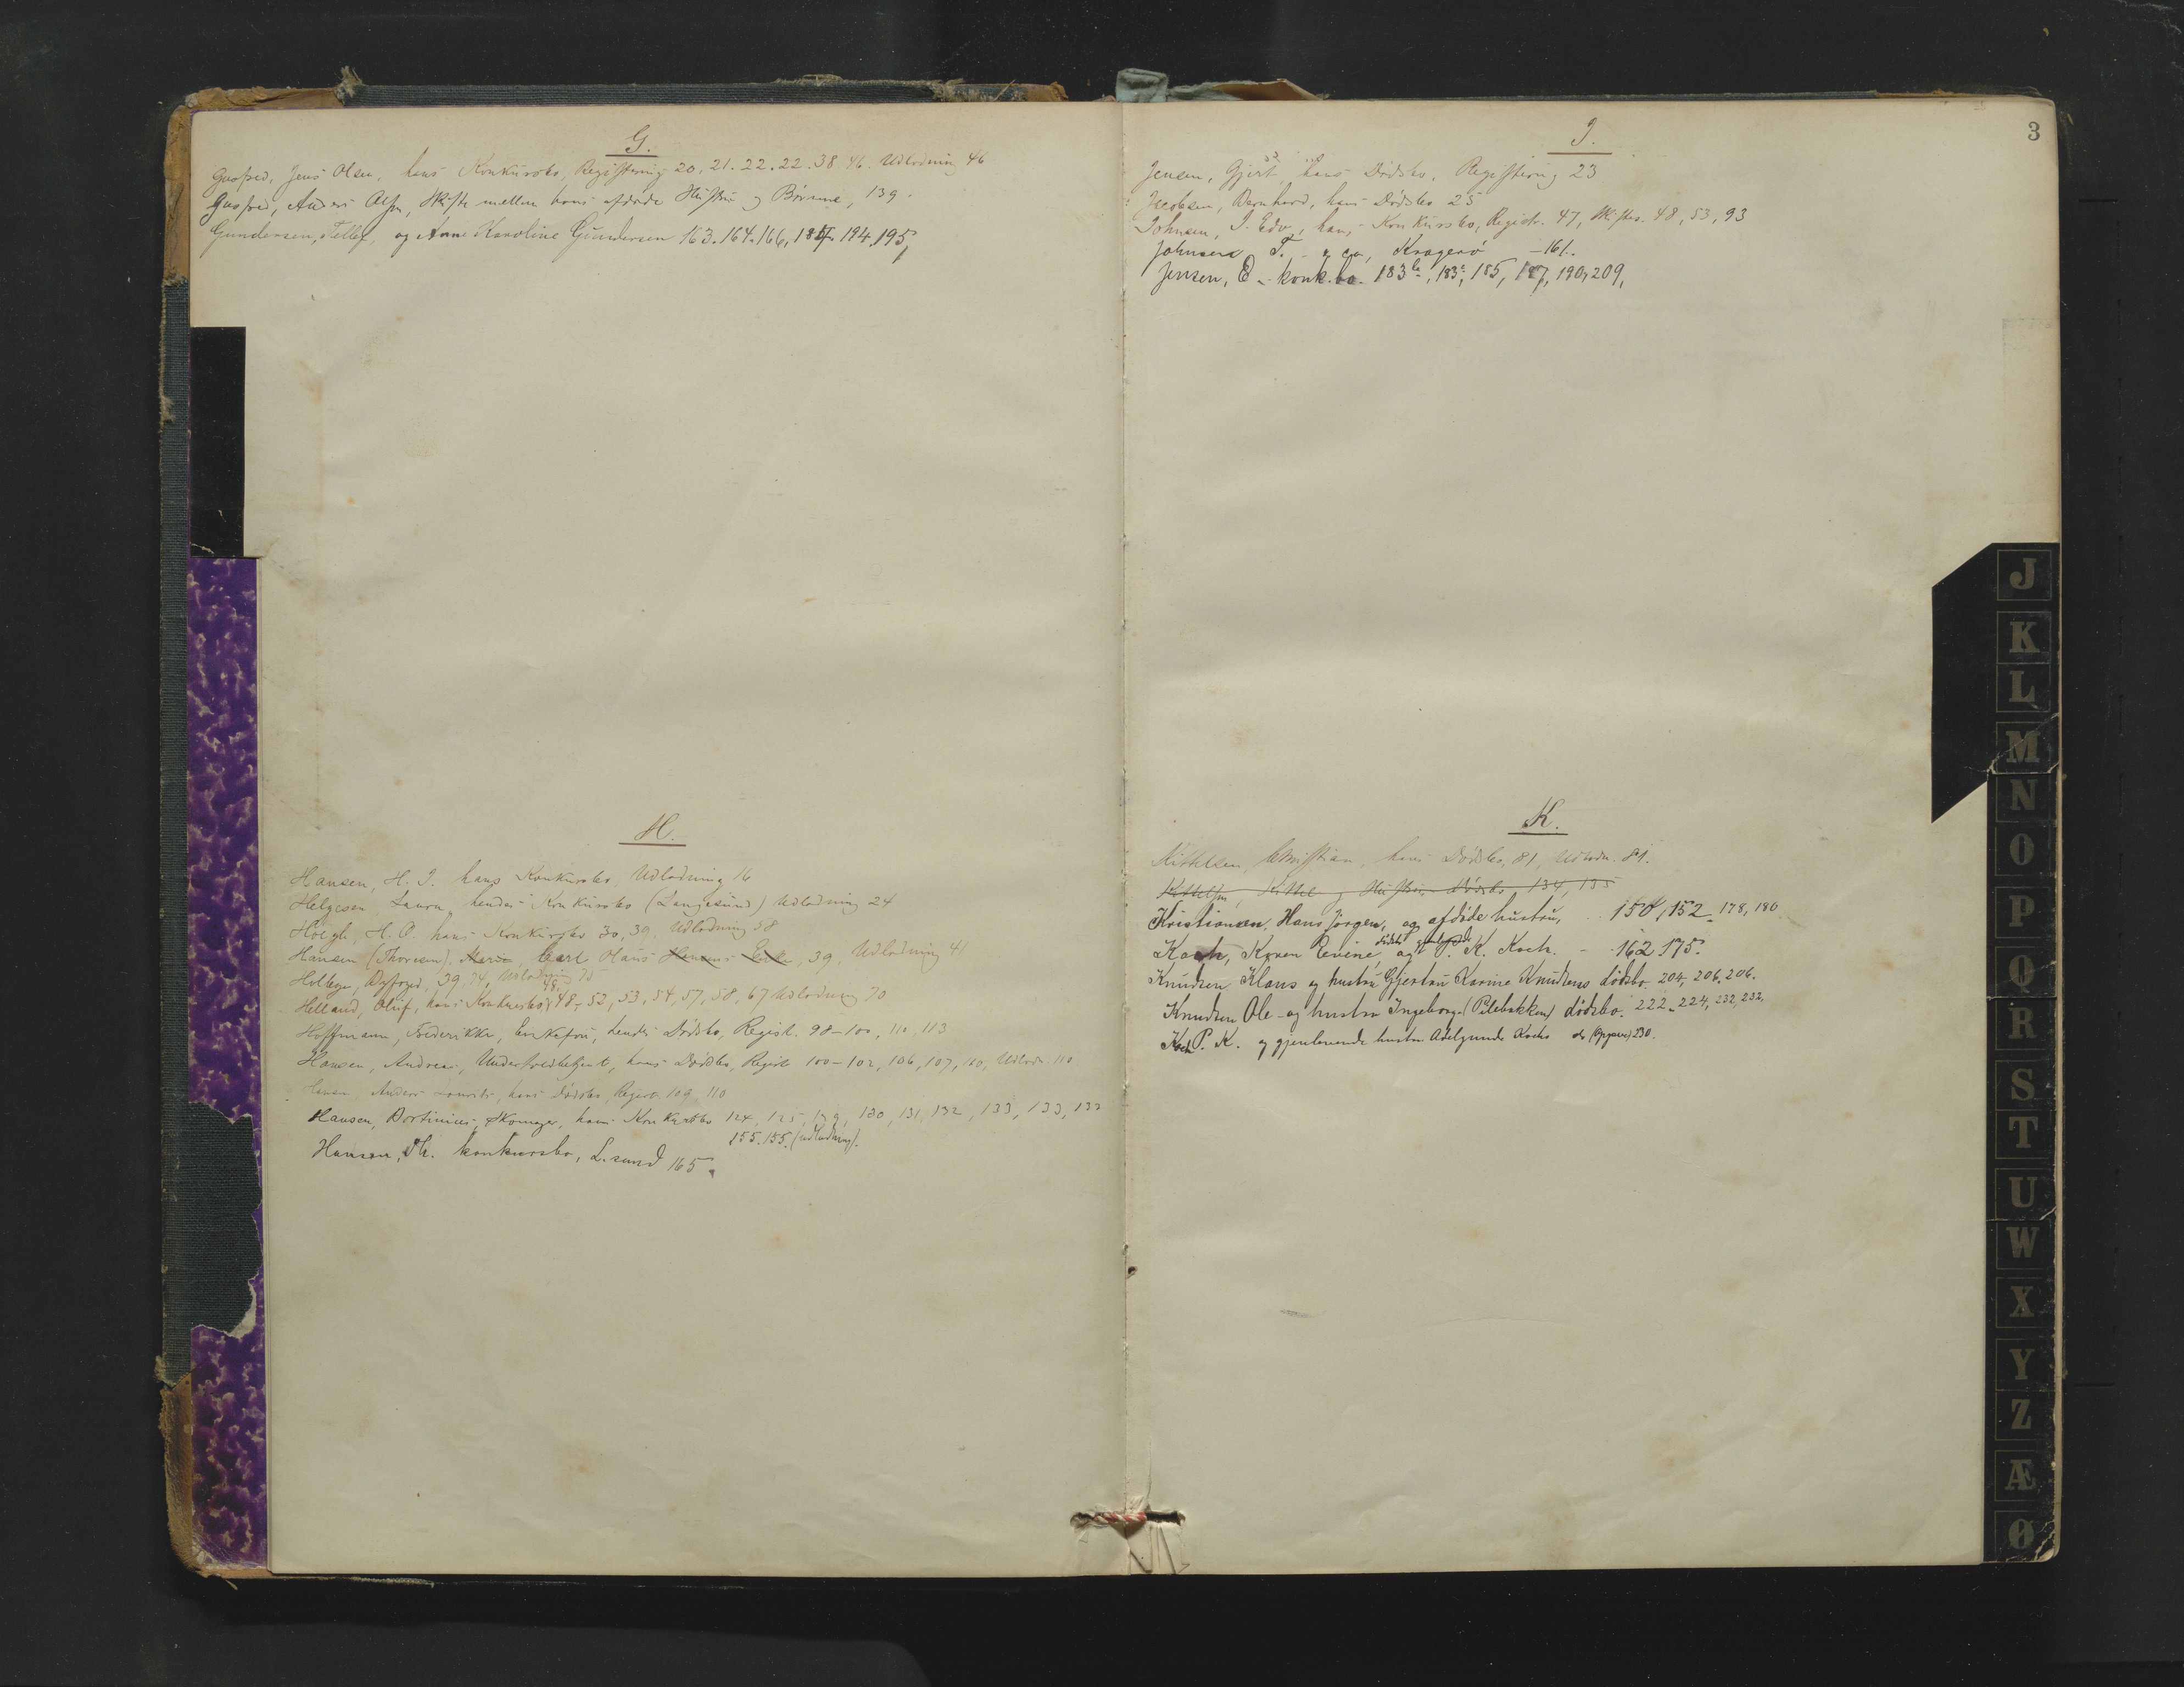 G.
Jens Olsen, hans Konkursbo, Registrering 20, 21. 22. 22. 38. 46. Udlodning 46
Anders Skifte mellem hans afdøde Hustru og Børnene, 139.
Gundersen, Tellef, og Anne Karoline Gundersen 163. 164. 166, 194. 195,
H.
Hansen, H. J. hans Konkursbo, Udlodning 16
Helgesen Laura, hendes Konkursbo (Langesund) Udlodning 24
Høegh, H. O. hans Konkursbo 30, 39. Udlodning 58
Hansen (Thoresen). Carl Hans 39, Udlodning 41
39, 74, Udlodning 75
Helland, Oluf, hans Konkursbo, 48, 48, 52, 53, 54, 57, 58, 67 Udlodning 70
Hoffmann, Frederikke, Enkefru, hendes Dødsbo, Registr. 98-100, 110, 113
Hansen, Andreas, hans Dødsbo, Registr 100-102, 106, 107, 110, Udlodn. 110.
Anders Lauritz, hans Dødsbo, Registr. 109, 110
Hansen, Skomager, hans Konkursbo 124, 125, 129, 130, 131, 132, 133, 133, 133
155. 155. (udlodning).
Hansen, konkursbo, L.sund 165.
3
J.
Jensen, Gjert hans Dødsbo, Registrering 23
Jacobsen, Bernhard, hans Dødsbo 25
Johnsen, J. Edv., hans Konkursbo, Registr. 47, Skiftes. 48, 53, 93
Johnsen T. - & co, Kragerø - 161.
Jensen, E. - konk.bo. 183b, 183c, 185, 187, 190, 209,
K.
Kittelsen, Christian, hans Dødsbo, 81, Udlodn. 81.
Kittelsen, Kittel og Hustrus Dødsbo 134, 135
Kristiansen, Hans Jørgen, og afdøde hustru, 150, 152. 178, 180
Koch, Karen Evine, dødsbo og P. K. Koch. - 162, 175.
Knudsen Klaus og hustru Gjertru Karine Knudsens dødsbo. 204, 206. 206.
Knudsen Ole - og hustru Ingeborg (Pilebakken) dødsbo. 222. 224, 232, 232,
Koch P. K. og gjenlevende hustru Adelgunde Kochs (Opgave) 230.
J
K
L
M
N
O
P
Q
R
S
T
U
W
X
Y
Z
Æ
Ø